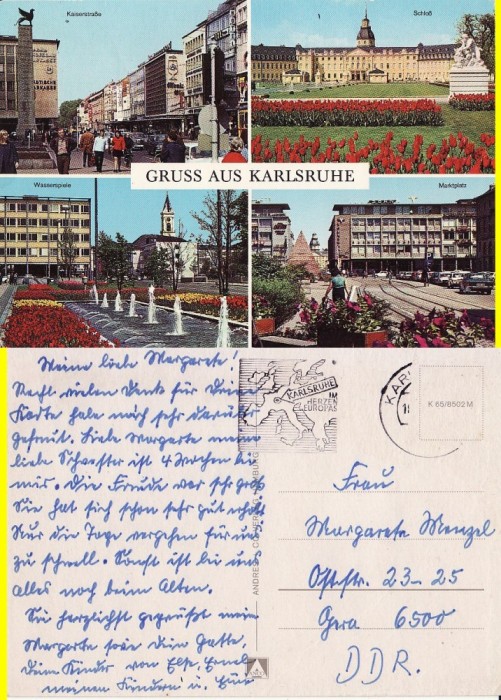 Kaiserstraße
Schloß
GRUSS AUS KARLSRUHE
Wasserspiele
Marktplatz
Meine liebe Margarete!
Recht vielen Dank für Deine
Karte habe mich sehr darüber
gefreut. Liebe Margarete meine
liebe Schwester ist 4 Wochen bei
mir. Die Freude war sehr groß
Sie hat sich schon sehr gut erholt
Nur die Tage vergehen für uns
zu schnell. Sonst ist bei uns
alles noch beim Alten.
Sei herzlichst gegrüßt mein
Margarete sowie Dein Gatte,
Deine Kinder von Else,
meinen Kindern u.
KARLSRUHE
IM
HERZEN
EUROPAS
KAR
K 65/8502 M
Frau
Margarete Menzel
Oststr. 23-25
Gera 6500
DDR.